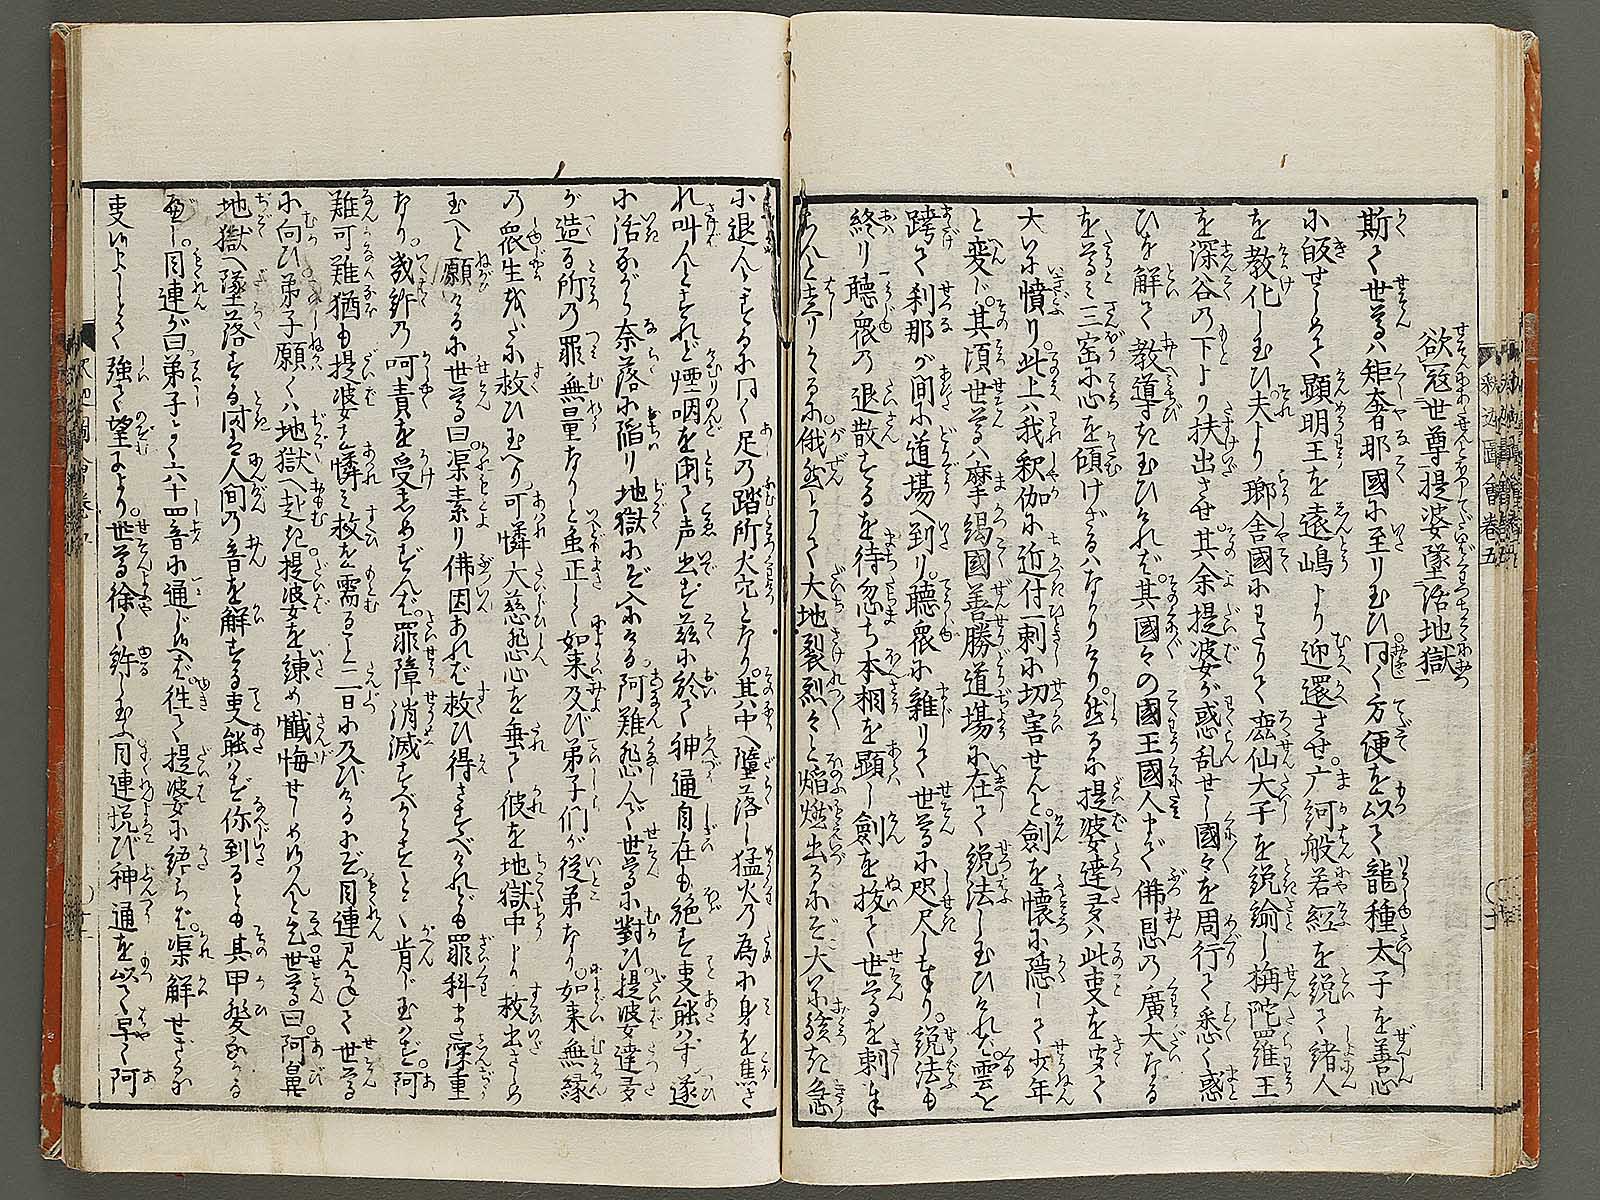 欲冦世尊提婆墜活地獄
斯て世尊ハ矩奢那國に至り玉ひ同く方便を以て龍種太子を善心
に皈せしめて顕明王を遠嶋より迎還させ广訶般若経を説て諸人
を教化し玉ひ夫より瑯舎國にわたりて露仙大子を説諭し栴陀羅王
を深谷の下より扶出させ其余提婆が惑乱せし國々を周行て悉く惑
ひを解て教導き玉ひけれバ其國々の國王國人まで佛恩の廣大なる
を尊ミ三宝に心を傾けざるハなかりけり然るに提婆達多ハ此事を聞て
大いに憤り此上ハ我釈伽に近付一刺に切害せんと劍を懐に隠して少年
と変じ其頃世尊ハ摩竭國善勝道場に在て説法し玉ひけれバ雲を
跨て刹那が間に道場へ到り聴衆に雜りて世尊に咫尺し奉り説法も
終り聴衆の退散するを待忽ち本相を顕し劍を抜て世尊を刺奉
らんと走りかゝるに俄然として大地裂烈々と焔燃出るにぞ大いに駭き急
に退んとするに同く足の踏所大穴となり其中へ墮落し猛火の為に身を焦さ
れ叫んとすれど煙咽を閉て声出ず茲に於て神通自在も絶す事能ハず遂
に活ながら奈落に陥り地獄にぞ入にける阿難悲んで世尊に對ひ提婆達多
が造る所の罪無量なりと虽正しく如来及び弟子們が従弟なり如来無縁
の衆生我だに救ひ玉へり可憐大慈悲心を垂て彼を地獄中より救出さしめ
玉へと願けるに世尊曰渠素り佛因あれバ救ひ得さすべけれども罪科まだ深重
なり幾許の呵責を受しめずんバ罪障消滅すべからずとて肯じ玉ハず阿
難可難猶も提婆を憐ミ救を需ること二三日に及びけるにぞ目連見るて世尊
に向ひ弟子願くハ地獄へ赴き提婆を諫め懺悔せしめ候ハんと乞世尊曰阿鼻
地獄へ墜落する者ハ人間の音を解する事能ハず你到るとも其甲斐なかる
べし目連が曰弟子よく六十四音に通じ候へバ往て提婆に語らバ渠解せざる
事候まじとて強て望により世尊徐く許し玉ふ目連悦び神通を以て早く阿
釈迦圖會巻五